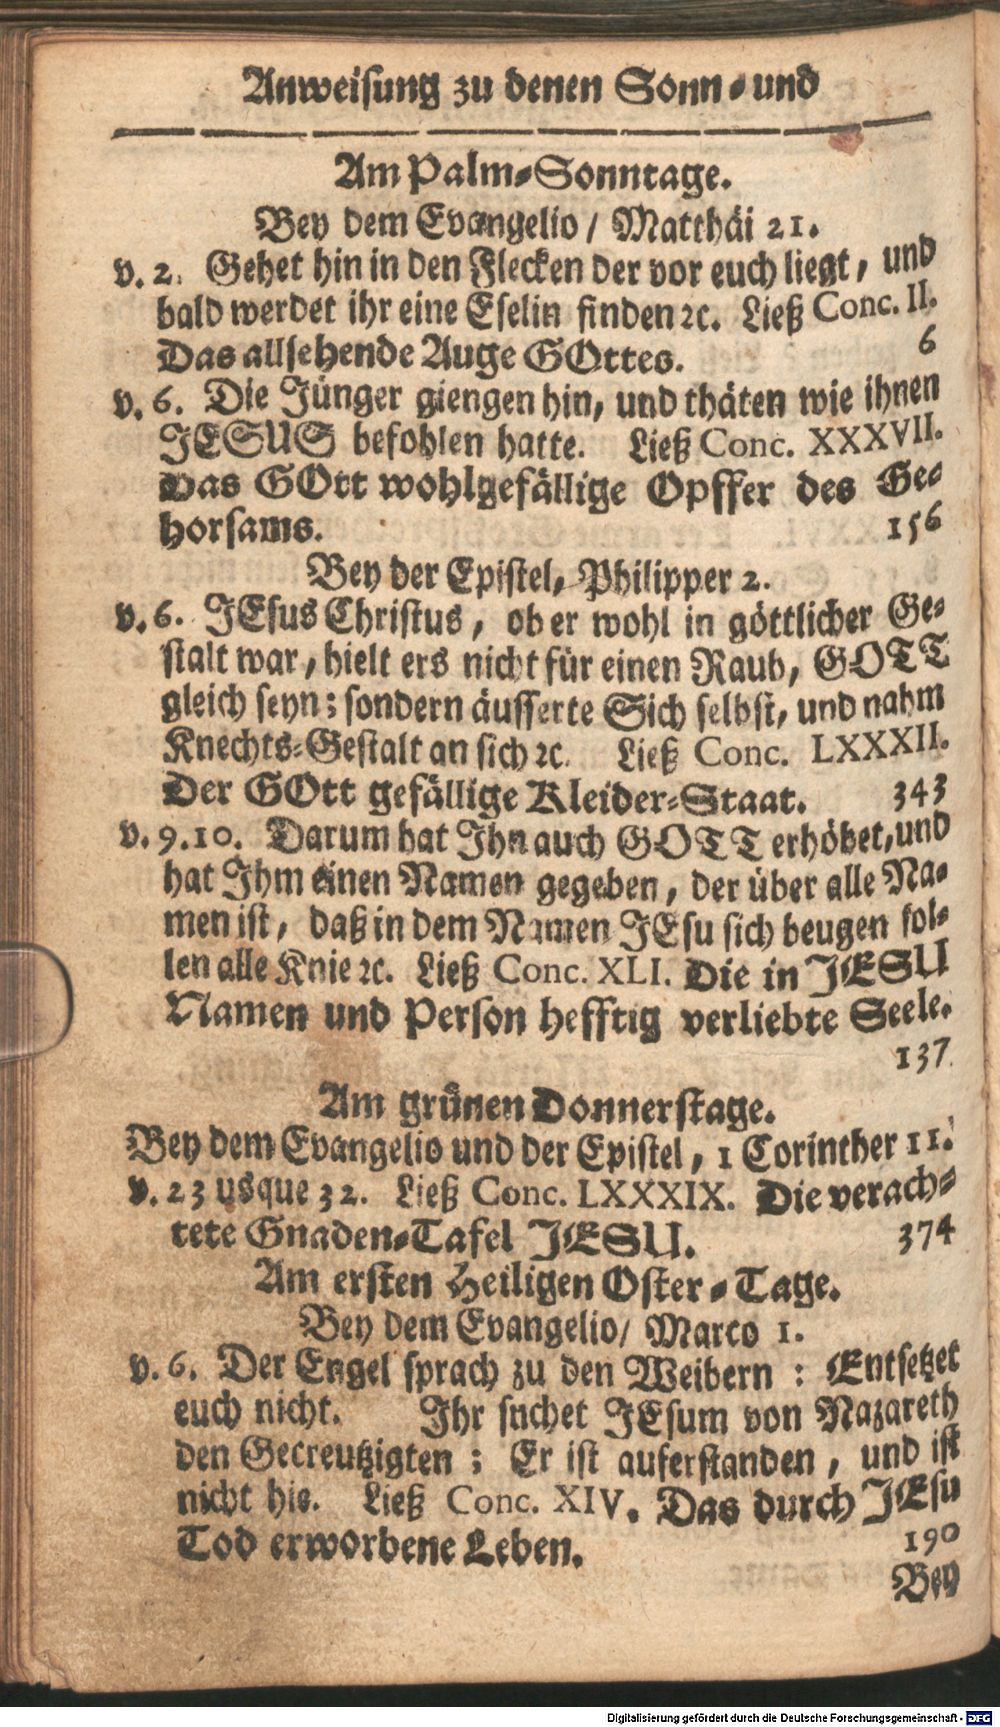 Anweisung zu denen Sonn-und
Am Palm-Sonntage.
Bey dem Evangelio / Matthäi 21.
v. 2. Gehet hin in den Flecken der vor euch liegt, und
bald werdet ihr eine Eselin finden ꝛc. Ließ Conc. II.
Das allsehende Auge GOttes. 6
v. 6. Die Jünger giengen hin, und thäten wie ihnen
JESUS befohlen hatte. Ließ Conc. XXXVII.
Das GOtt wohlgefällige Opffer des Ge-
horsams. 156
Bey der Epistel, Philipper 2.
v. 6. JEsus Christus, ob er wohl in göttlicher Ge-
stalt war, hielt ers nicht für einen Raub, GOTT
gleich seyn; sondern äusserte Sich selbst, und nahm
Knechts-Gestalt an sich ꝛc. Ließ Conc. LXXXII.
Der GOtt gefällige Kleider-Staat. 343
v. 9. 10. Darum hat Ihn auch GOTT erhöhet, und
hat Ihm einen Namen gegeben, der über alle Na-
men ist, daß in dem Namen JEsu sich beugen sol-
len alle Knie ꝛc. Ließ Conc. XLI. Die in JESU
Namen und Person hefftig verliebte Seele.
137
Am grünen Donnerstage.
Bey dem Evangelio und der Epistel, 1 Corinther 11.
v. 23 usque 32. Ließ Conc. LXXXIX. Die verach-
tete Gnaden-Tafel JESU. 374
Am ersten Heiligen Oster-Tage.
Bey dem Evangelio/ Marco 1.
v. 6. Der Engel sprach zu den Weibern: Entsetzet
euch nicht. Ihr suchet JEsum von Nazareth
den Gecreutzigten; Er ist auferstanden, und ist
nicht hie. Ließ Conc. XIV. Das durch JEsu
Tod erworbene Leben. 190
Bey
Digitalisierung gefördert durch die Deutsche Forschungsgemeinschaft - DFG